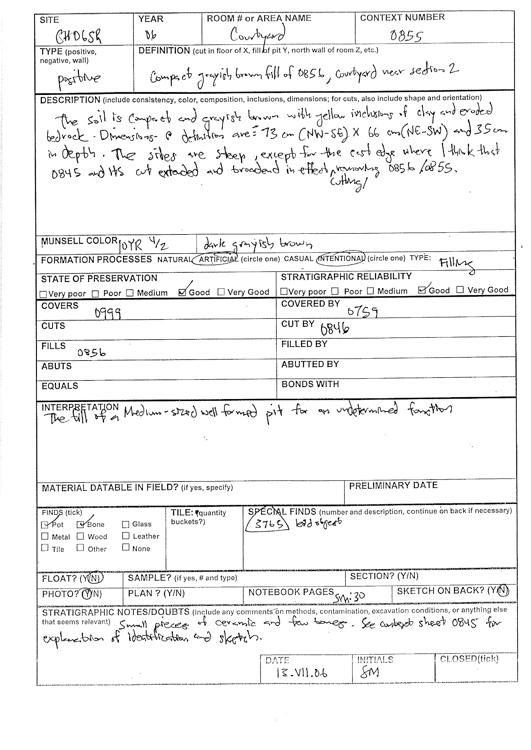 SITE YEAR ROOM # or AREA NAME CONTEXT NUMBER
CHD6SR 06 Courtyard 0855
TYPE (positive, negative, wall) DEFINITION (cut in floor of X, fill of pit Y, north wall of room Z, etc.)
positive Compact grayish brown fill of 0856, courtyard near section 2
DESCRIPTION (include consistency, color, composition, inclusions, dimensions; for cuts, also include shape and orientation)
The soil is compact and grayish brown with yellow inclusions of clay and eroded
bedrock. Dimensions @ definition are: 73 cm (NW-SE) X 66 cm (NE-SW) and 35 cm
in depth. The sides are steep, except for the east edge where I think that
0845 and its cut extended and broadened in effect, removing 0856/0855.
cutting/
MUNSELL COLOR 10YR 4/2 dark grayish brown
FORMATION PROCESSES NATURAL ARTIFICIAL (circle one) CASUAL INTENTIONAL (circle one) TYPE: Filling
STATE OF PRESERVATION STRATIGRAPHIC RELIABILITY
Very poor Poor Medium Good Very Good Very poor Poor Medium Good Very Good
COVERS 0999 COVERED BY 0759
CUTS CUT BY 0846
FILLS 0856 FILLED BY
ABUTS ABUTTED BY
EQUALS BONDS WITH
INTERPRETATION
The fill of a Medium-sized well formed pit for an undetermined function
MATERIAL DATABLE IN FIELD? (if yes, specify) PRELIMINARY DATE
FINDS (tick) TILE: (quantity buckets?) SPECIAL FINDS (number and description, continue on back if necessary)
Pot Bone Glass 3765
Metal Wood Leather
Tile Other None
FLOAT? (Y/N) SAMPLE? (if yes, # and type) SECTION? (Y/N)
PHOTO? (Y/N) PLAN? (Y/N) NOTEBOOK PAGES SM:30 SKETCH ON BACK? (Y/N)
STRATIGRAPHIC NOTES/DOUBTS (include any comments on methods, contamination, excavation conditions, or anything else
that seems relevant) Small pieces of ceramic and few bones. See context sheet 0845 for
explanation of identification and sketch.
DATE INITIALS CLOSED(tick)
13.VII.06 SM